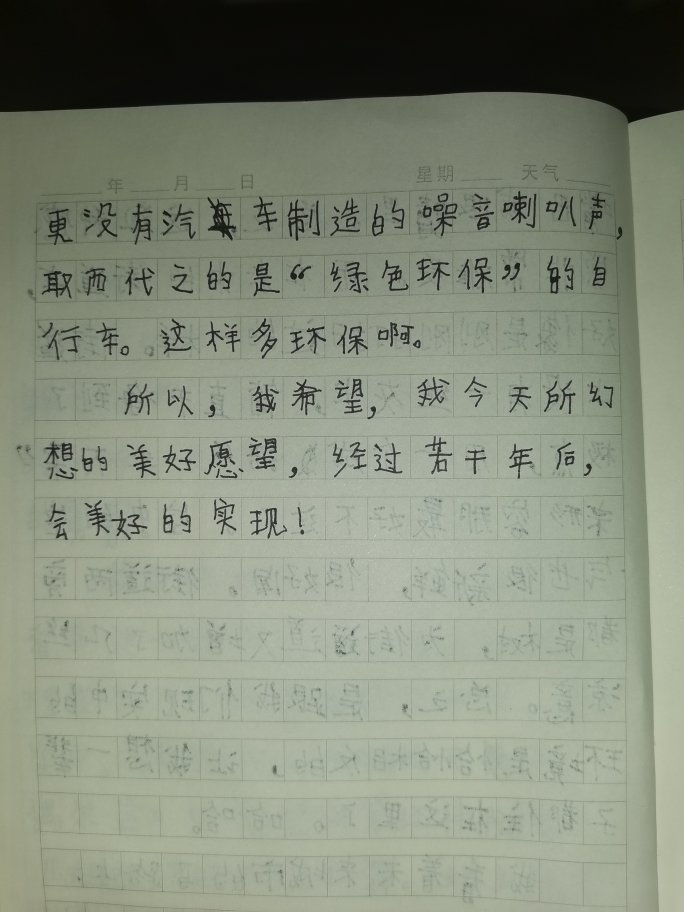 年 月 日 星期 天气
更没有汽车制造的噪音喇叭声,
取而代之的是“绿色环保”的自
行车。这样多环保啊。
所以,我希望,我今天所幻
想的美好愿望,经过若干年后,
会美好的实现!